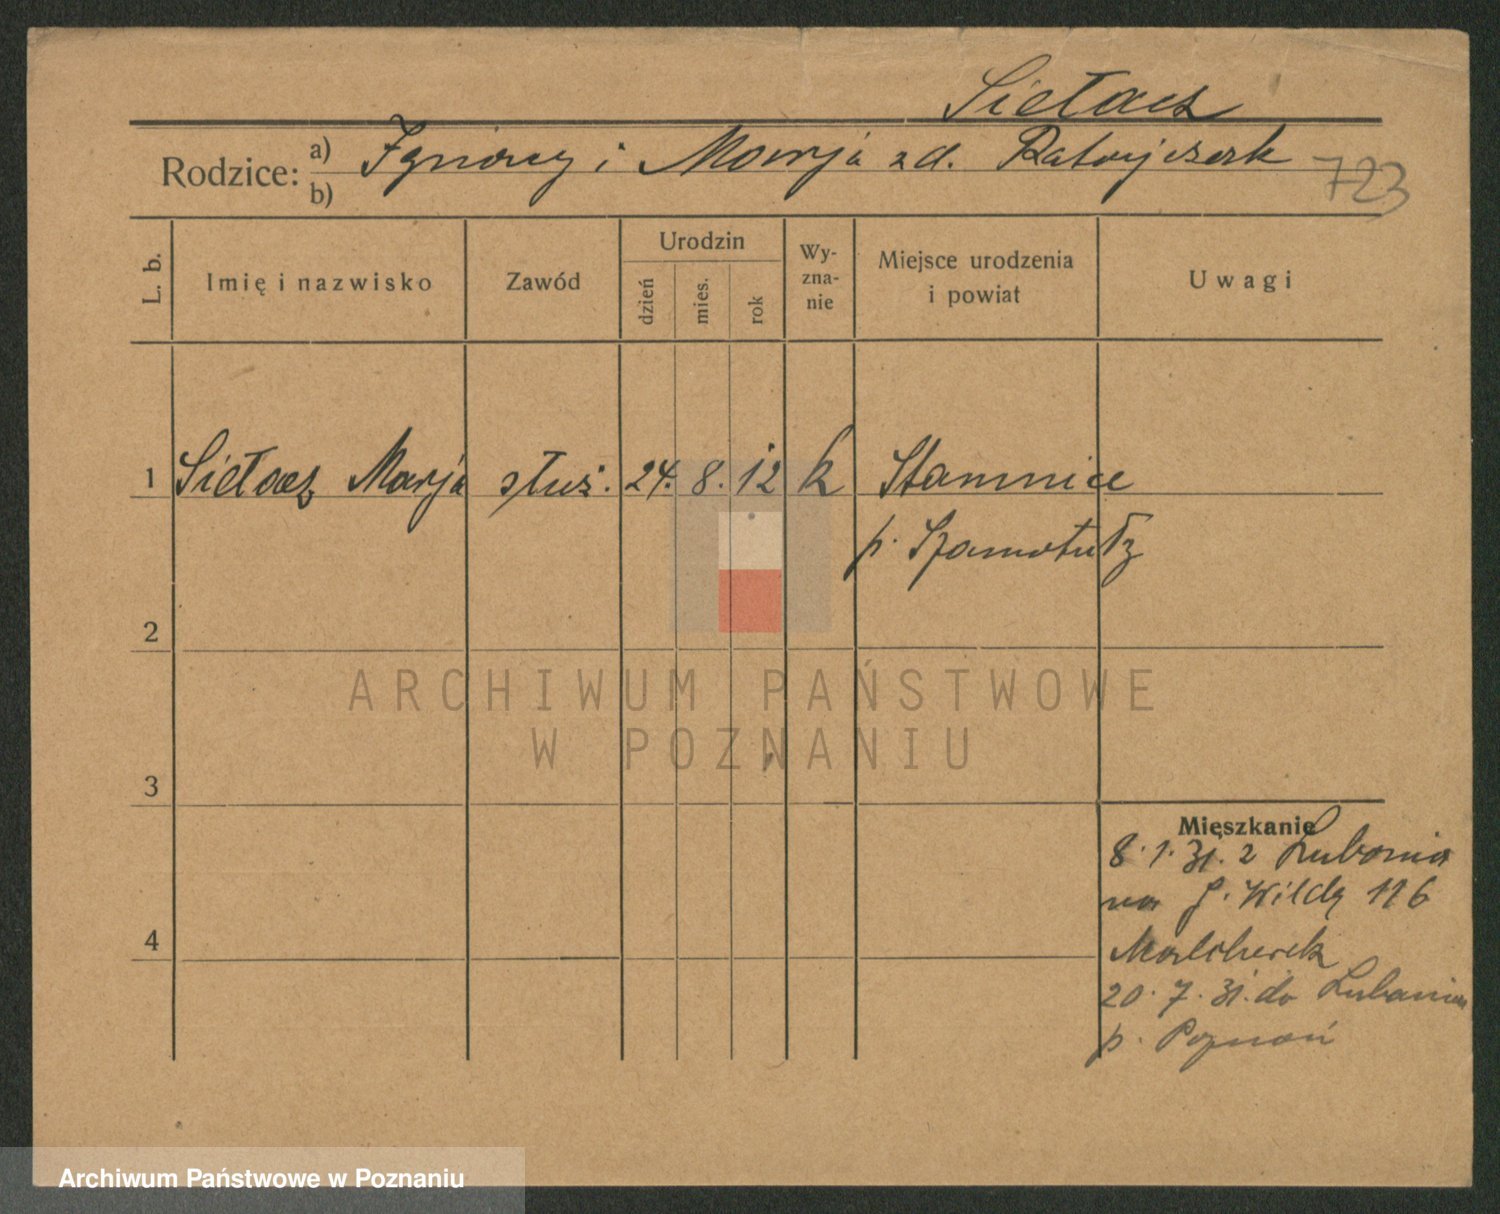 Siełacz
Rodzice: a) Ignacy i Marja zd. Ratajczak
b)
723
L. b.
Imię i nazwisko
Zawód
Urodzin
dzień
mies.
rok
Wy-
zna-
nie
Miejsce urodzenia
i powiat
Uwagi
1 Siełacz Marja służ. 24. 8. 12 k Stamnice
p. Szamotuły
2
3
4
Mieszkanie
8. 1. 31. z Lubonia
na G. Wildę 116
Malcherek
20. 7. 31. do Lubonia
p. Poznań
ARCHIWUM PAŃSTWOWE
W POZNANIU
Archiwum Państwowe w Poznaniu